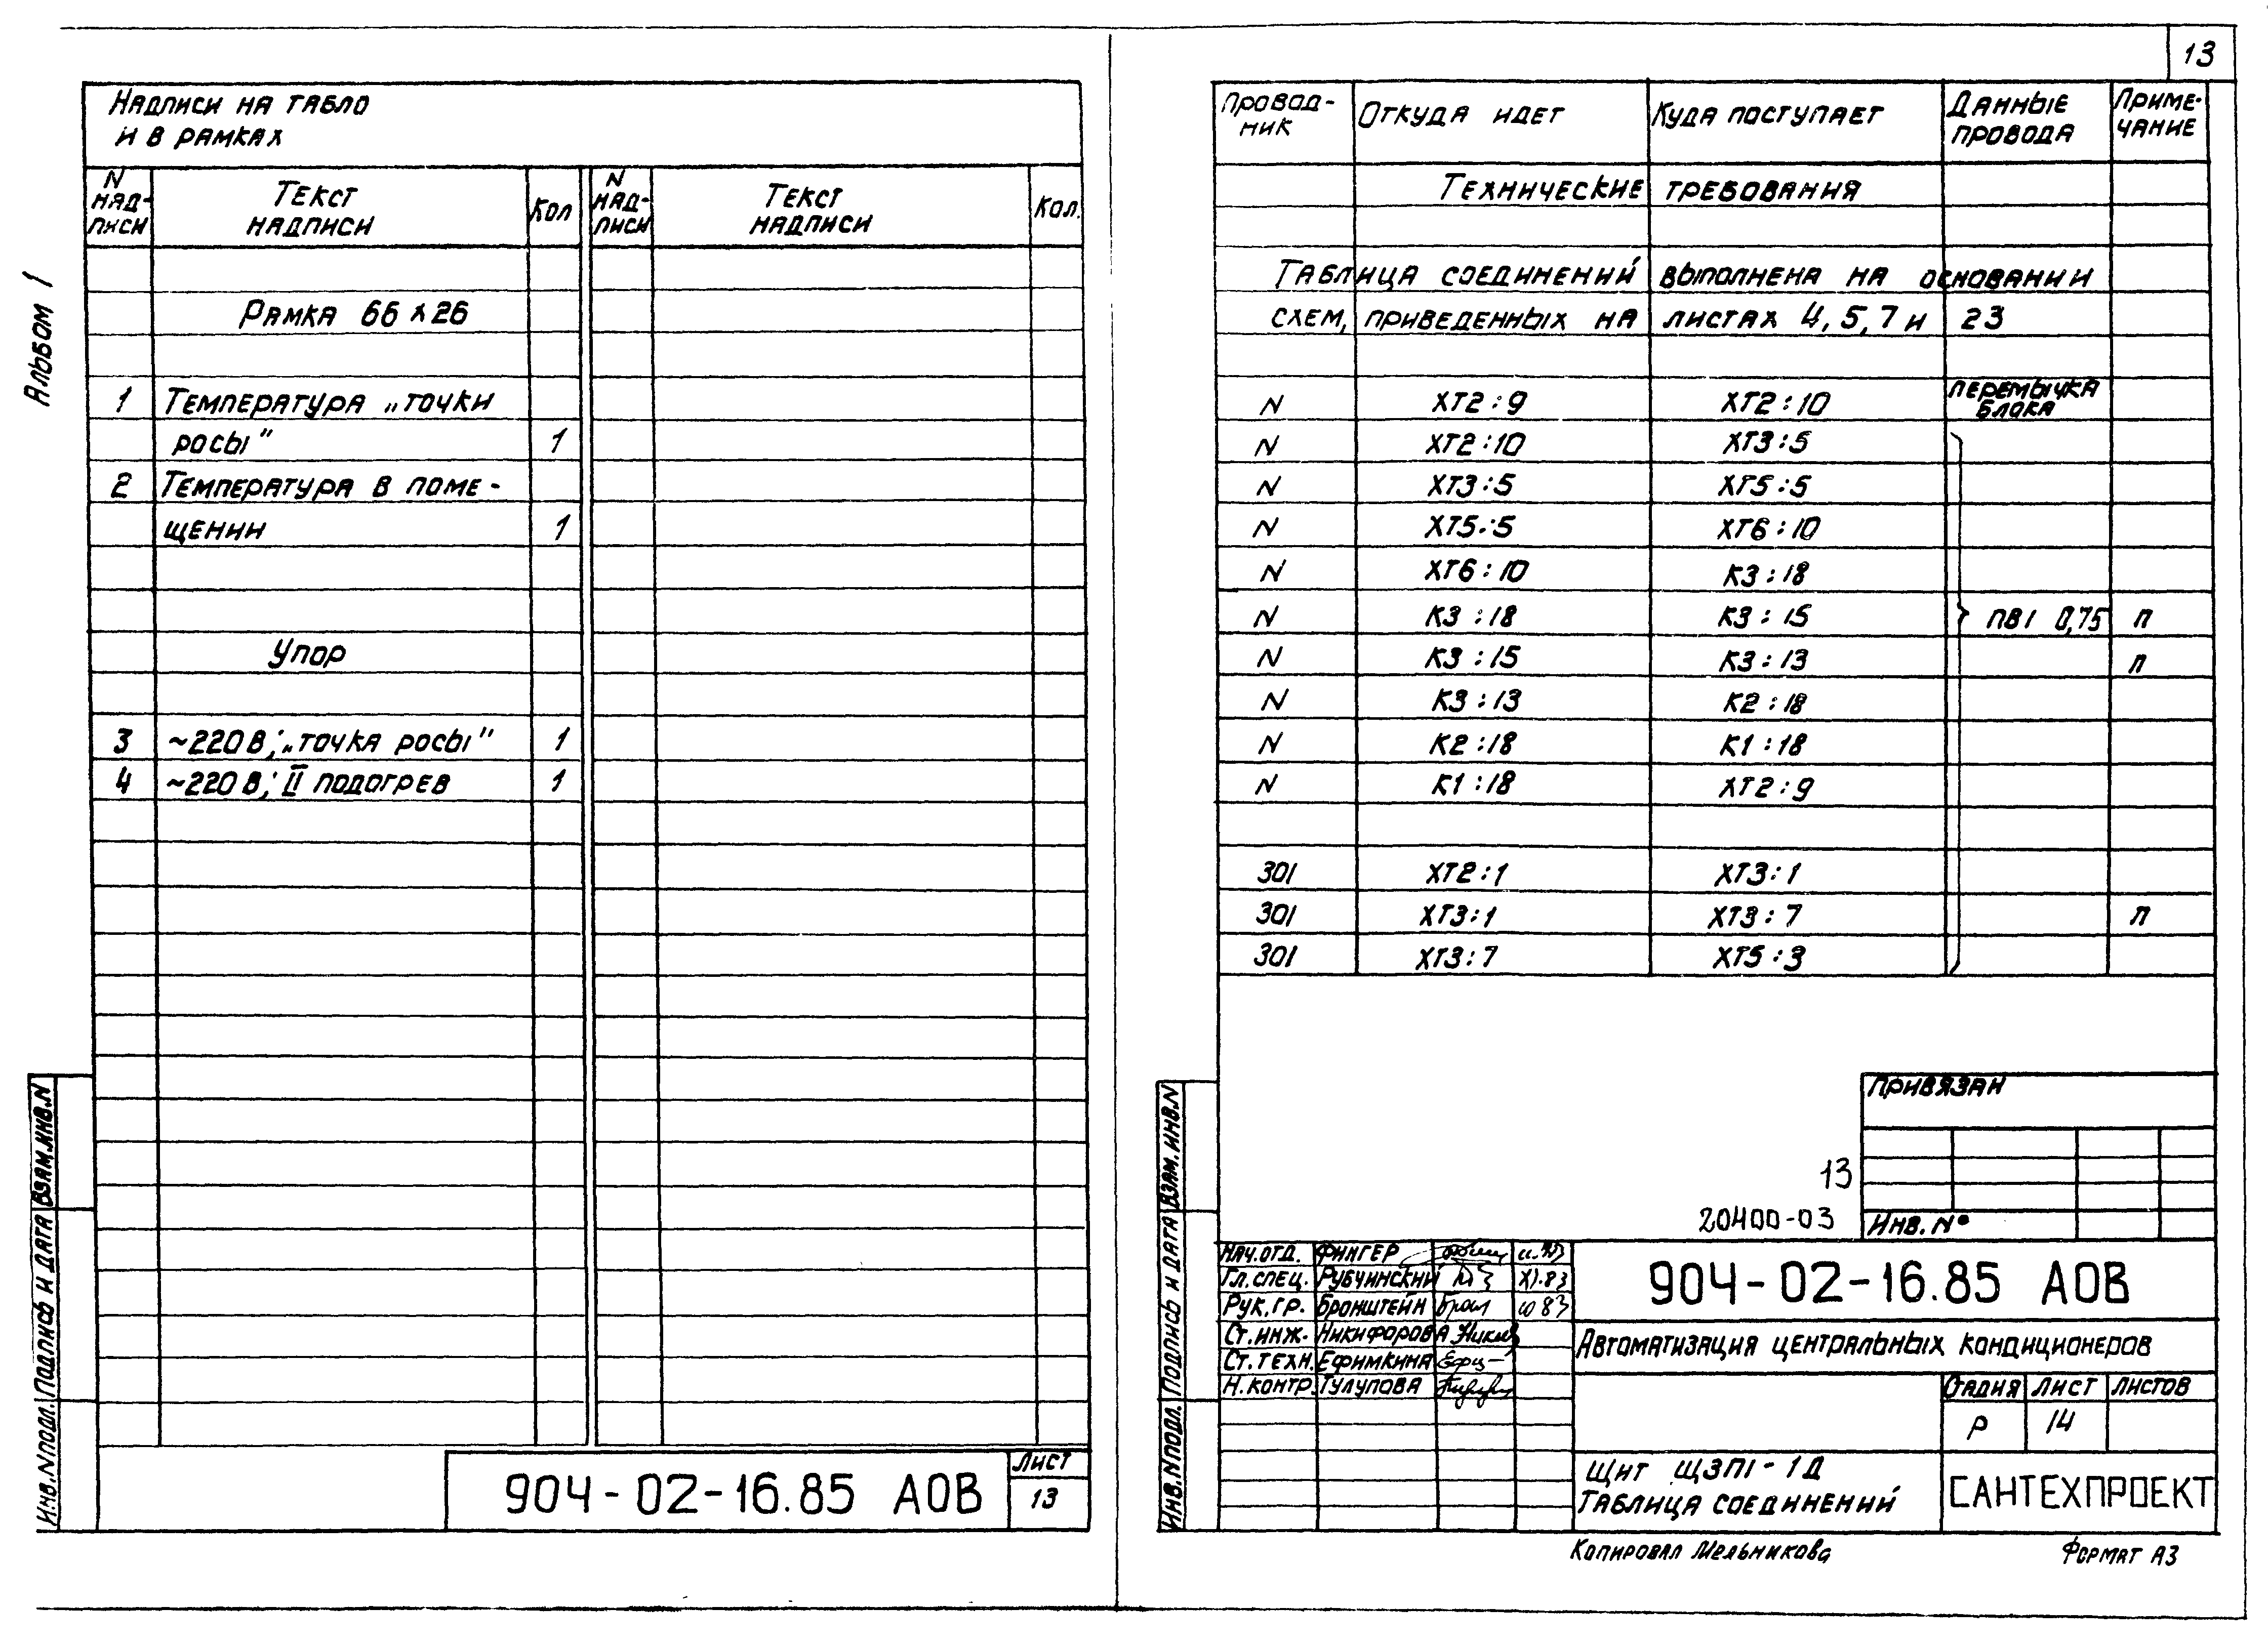 13
Альбом 1
Надписи на табло
и в рамках
N надписи Текст надписи Кол N надписи Текст надписи Кол.
Рамка 66 х 26
1 Температура „точки
росы" 1
2 Температура в поме-
щении 1
Упор
3 ~220 В; „точка росы" 1
4 ~220 В; II подогрев 1
Инв.N подл. Подпись и дата Взам.инв.N
904-02-16.85 АОВ
Лист
13
Провод-
ник Откуда идет Куда поступает Данные
провода Приме-
чание
Технические требования
Таблица соединений выполнена на основании
схем, приведенных на листах 4, 5, 7 и 23
N ХТ2:9 ХТ2:10 перемычка
блока
N ХТ2:10 ХТ3:5
N ХТ3:5 ХТ5:5
N ХТ5:5 ХТ6:10
N ХТ6:10 К3:18
N К3:18 К3:15 ПВ1 0,75 п
N К3:15 К3:13 п
N К3:13 К2:18
N К2:18 К1:18
N К1:18 ХТ2:9
301 ХТ2:1 ХТ3:1
301 ХТ3:1 ХТ3:7 п
301 ХТ3:7 ХТ5:3
Привязан
13
20400-03
Инв. №
Инв.N подл. Подпись и дата Взам.инв.N
Нач.отд. Фингер
Гл.спец. Рубчинский XI.83
Рук.гр. Бронштейн
Ст.инж. Никифорова
Ст.техн. Ефимкина
Н.контр. Тулупова
904-02-16.85 АОВ
Автоматизация центральных кондиционеров
Стадия Лист Листов
Р 14
Щит ЩЗП1-1Д
Таблица соединений
САНТЕХПРОЕКТ
Копировал Мельникова
Формат А3